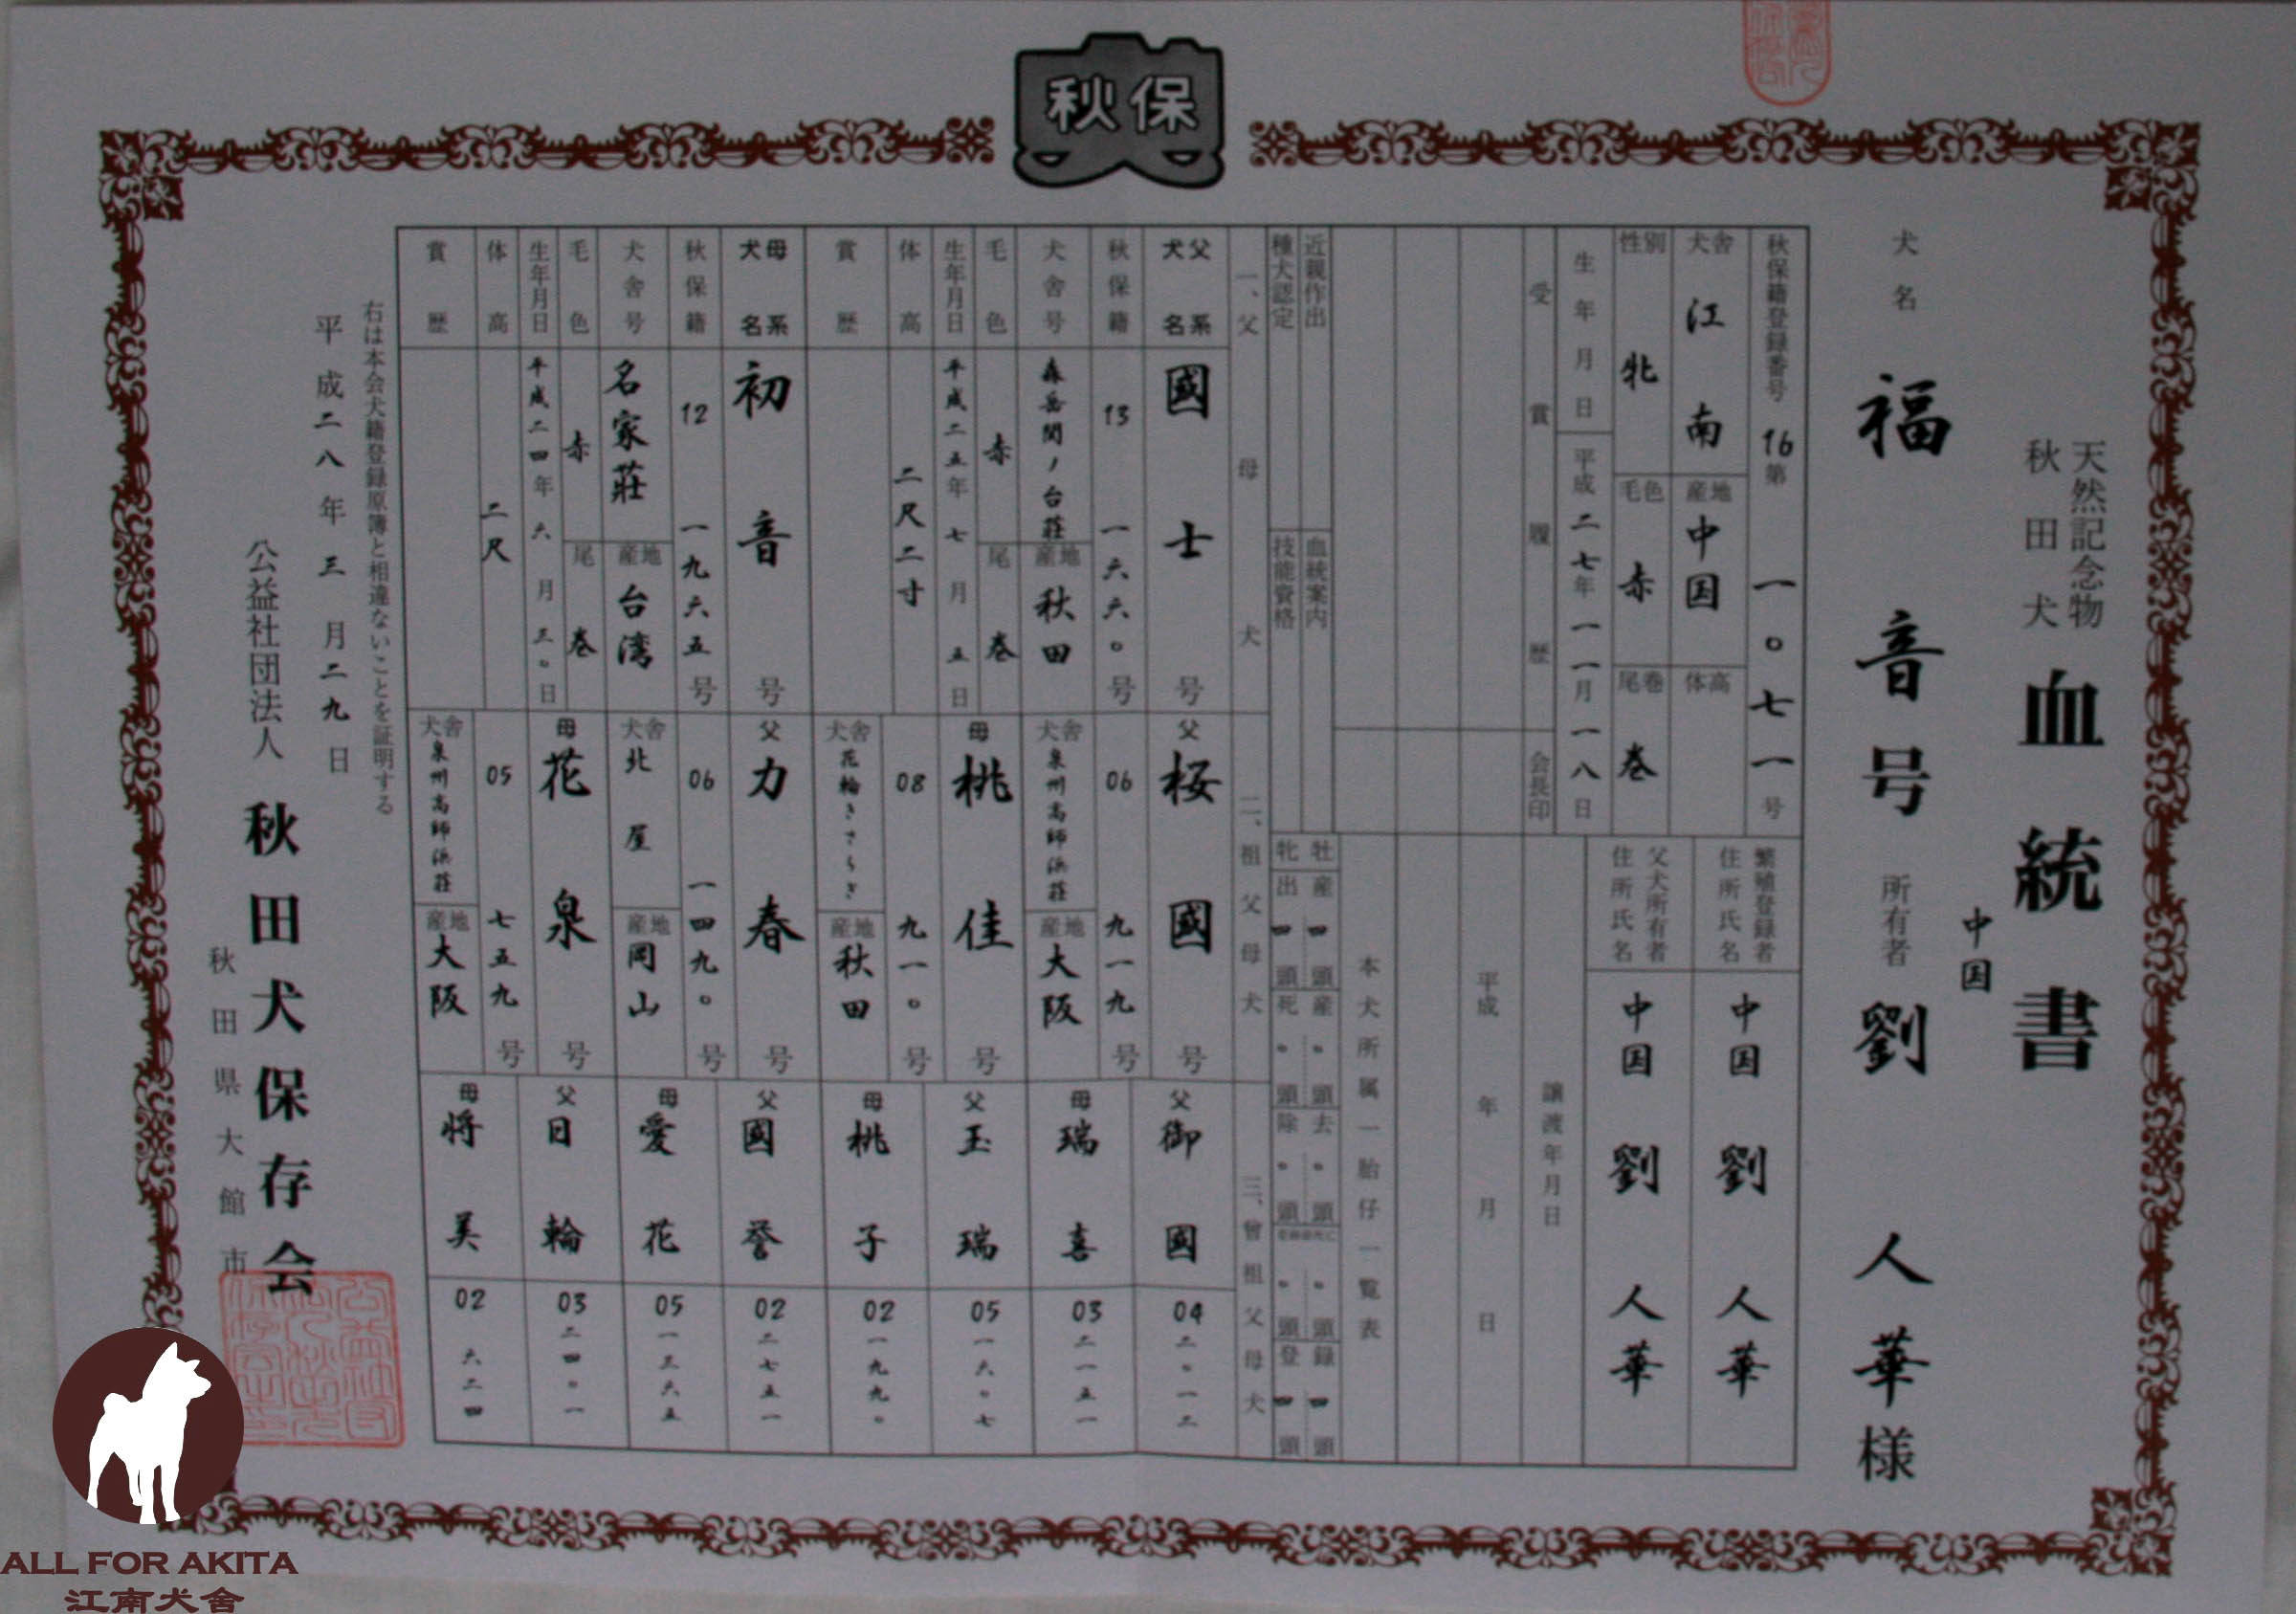 秋保
天然記念物
秋田犬
血統書
犬名 福音号
所有者 中国 劉人華様
秋保籍登録番号 16第一〇七一号
犬舎 江南
産地 中国
体高
性別 牝
毛色 赤
尾巻 巻
生年月日 平成二七年一一月一八日
受賞履歴
会長印
繁殖登録者
住所氏名
中国 劉人華
父犬所有者
住所氏名
中国 劉人華
譲渡年月日
平成 年 月 日
本犬所属一胎仔一覧表
近親作出
種犬認定
血統案内
技能資格
牡 産 四頭
牝 出 四頭
産 頭
死 頭
去 頭
除 頭
録 四頭
登 四頭
一、父母犬
二、祖父母犬
三、曾祖父母犬
父系
犬名
國士号
秋保籍 13 一六六〇号
犬舎号 森岳関ノ台荘
産地 秋田
毛色 赤
尾 巻
生年月日 平成二五年七月五日
体高 二尺二寸
賞歴
母系
犬名
初音号
秋保籍 12 一九六五号
犬舎号 名家荘
産地 台湾
毛色 赤
尾 巻
生年月日 平成二四年六月三〇日
体高 二尺
賞歴
父 桜國号
06 九一九号
犬舎 泉州高師浜荘
産地 大阪
母 桃佳号
08 九一〇号
犬舎 花輪きさらぎ
産地 秋田
父 力春号
06 一四九〇号
犬舎 北屋
産地 岡山
母 花泉号
05 七五九号
犬舎 泉州高師浜荘
産地 大阪
父 御國 04 二〇一三
母 瑞喜 03 二一五一
父 玉瑞 05 一六〇七
母 桃子 02 一九九〇
父 國誉 02 二七五一
母 愛花 05 一三六五
父 日輪 03 二四〇一
母 将美 02 六二四
右は本会犬籍登録原簿と相違ないことを証明する
平成二八年三月二九日
公益社団法人 秋田犬保存会
秋田県大館市
ALL FOR AKITA
江南犬舎